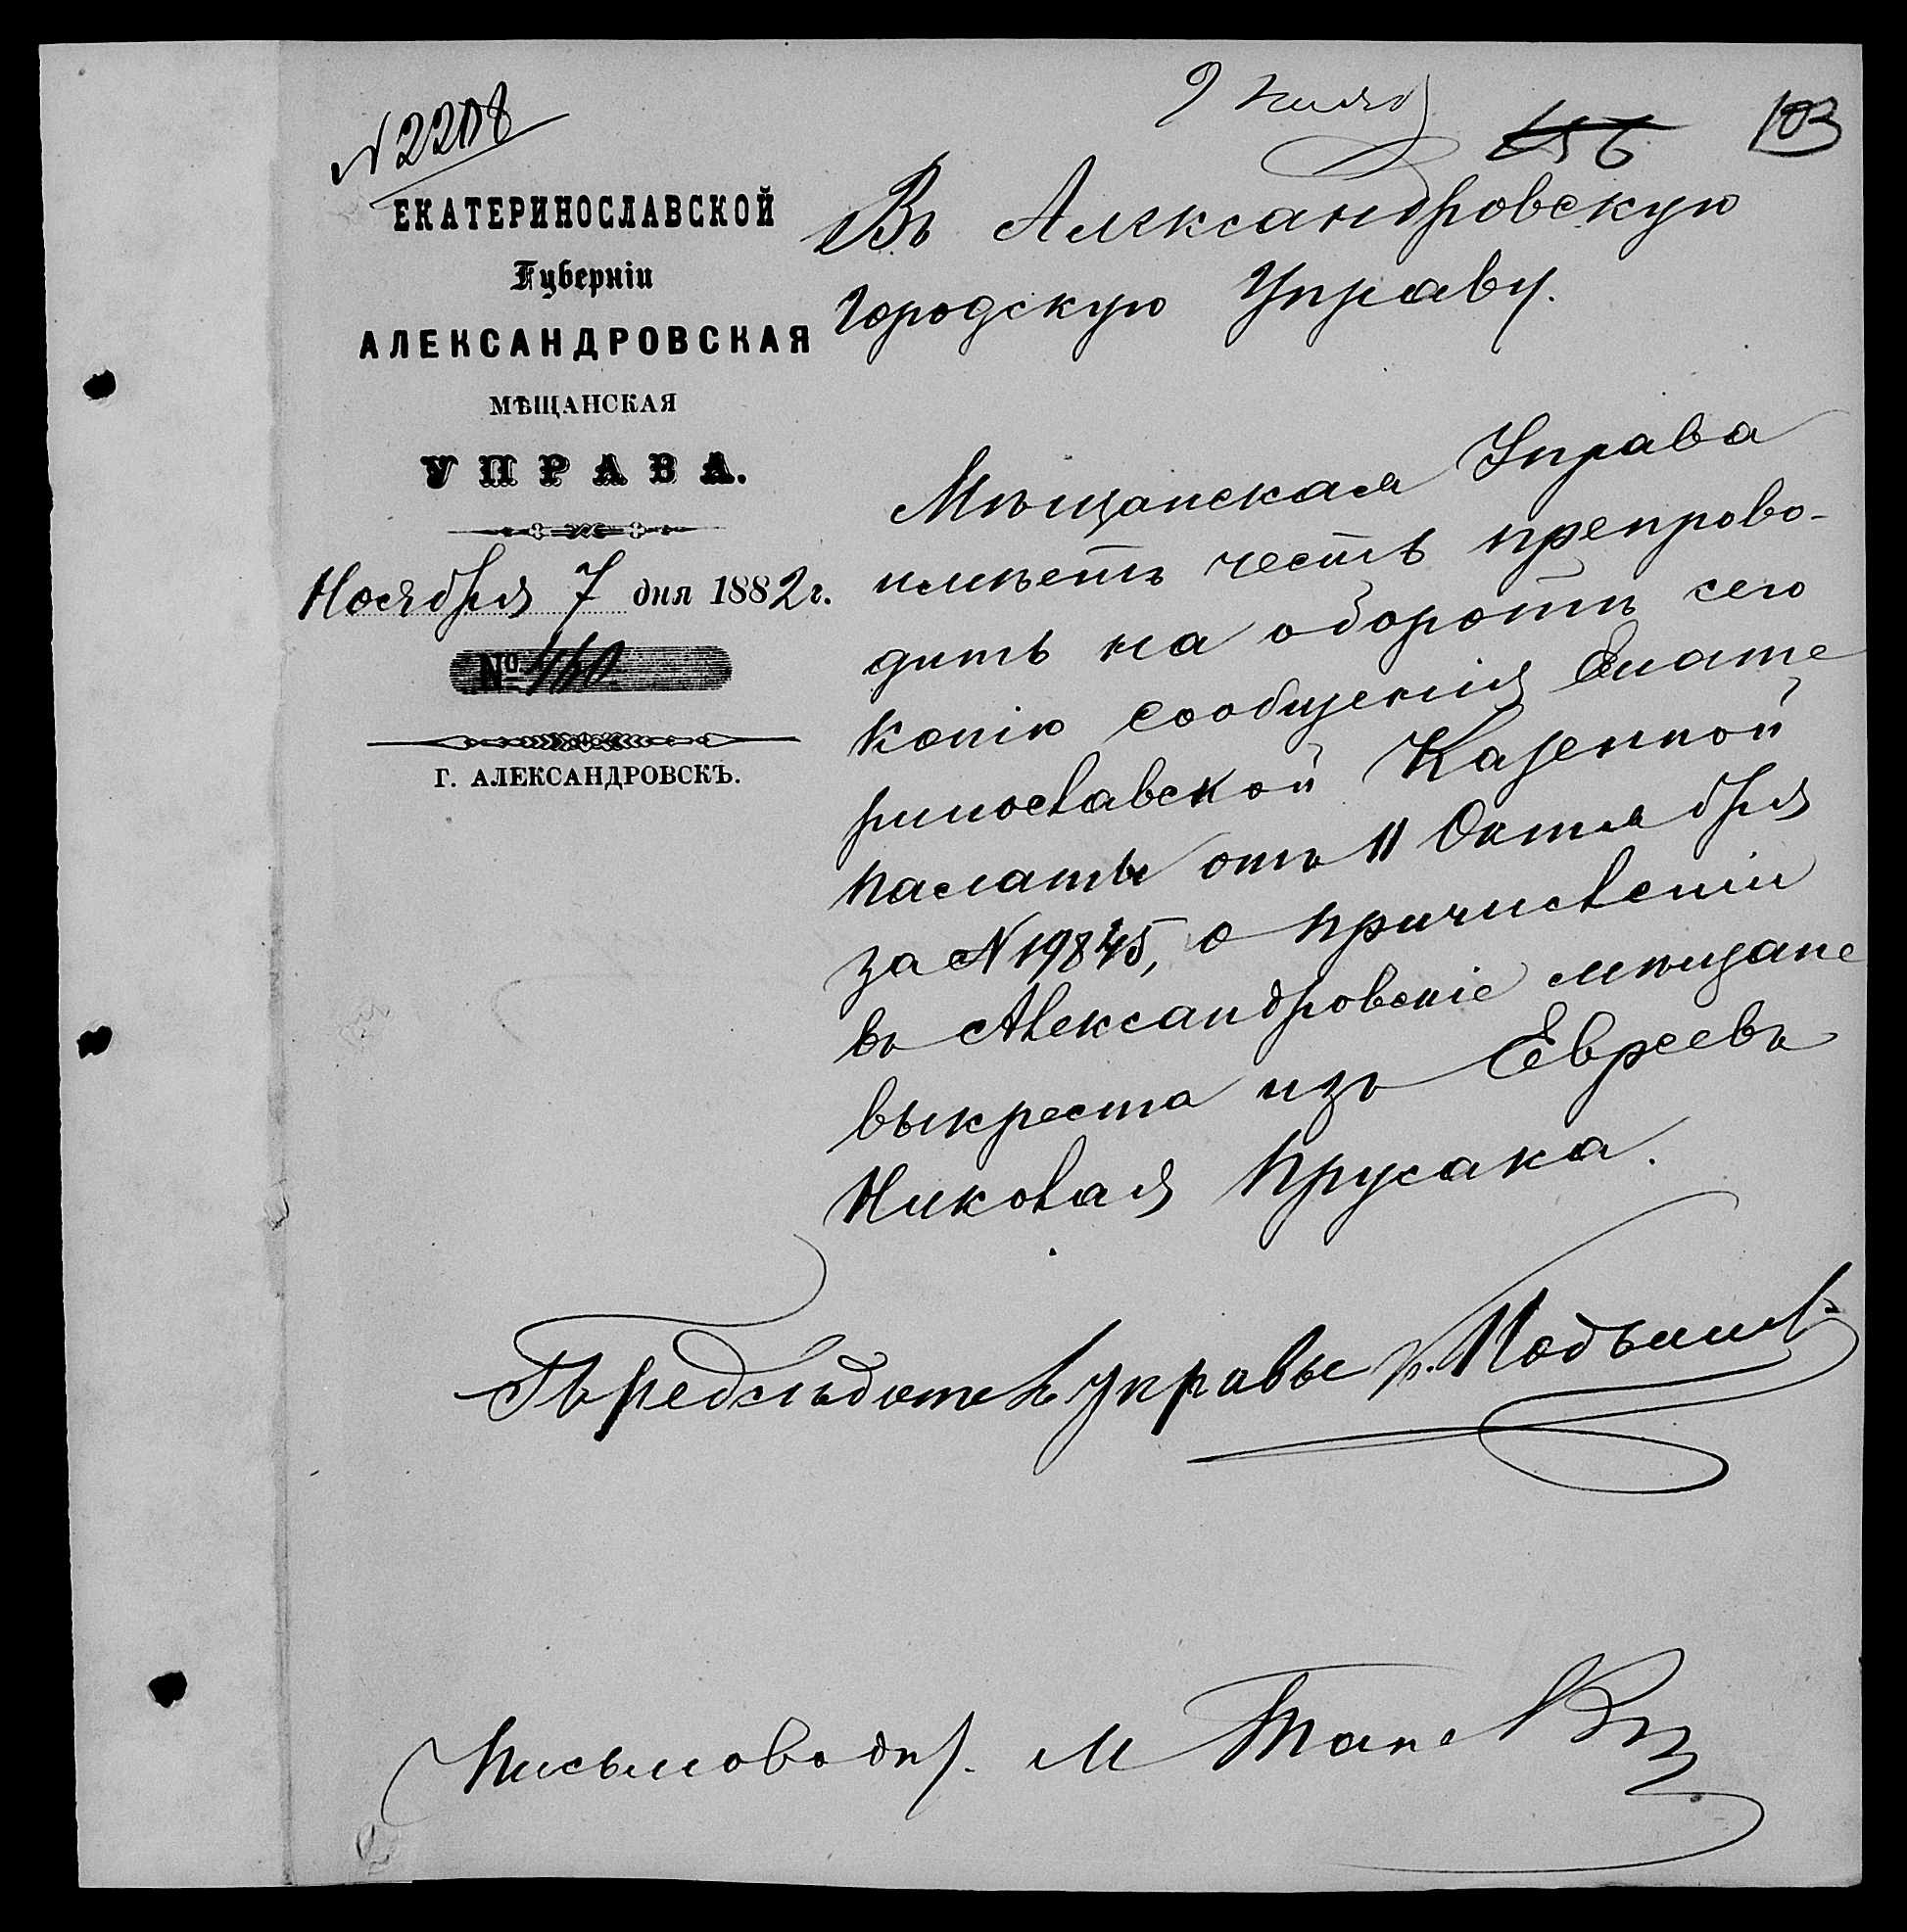 № 2208
9 Нояб
656
103
ЕКАТЕРИНОСЛАВСКОЙ
Губерніи
АЛЕКСАНДРОВСКАЯ
МѢЩАНСКАЯ
УПРАВА.
Ноября 7 дня 1882 г.
№ 460.
Г. АЛЕКСАНДРОВСКЪ.
Въ Александровскую
Городскую Управу.
Мѣщанская Управа
имѣетъ честь препрово-
дить на оборотѣ сего
копію сообщенія Екате
ринославской Казенной
палаты отъ 11 Октября
за № 19845, о причисленіи
въ Александровскіе мѣщане
выкреста изъ Евреевъ
Николая Прусака.
Предсѣдатель управы
Письмоводит. М